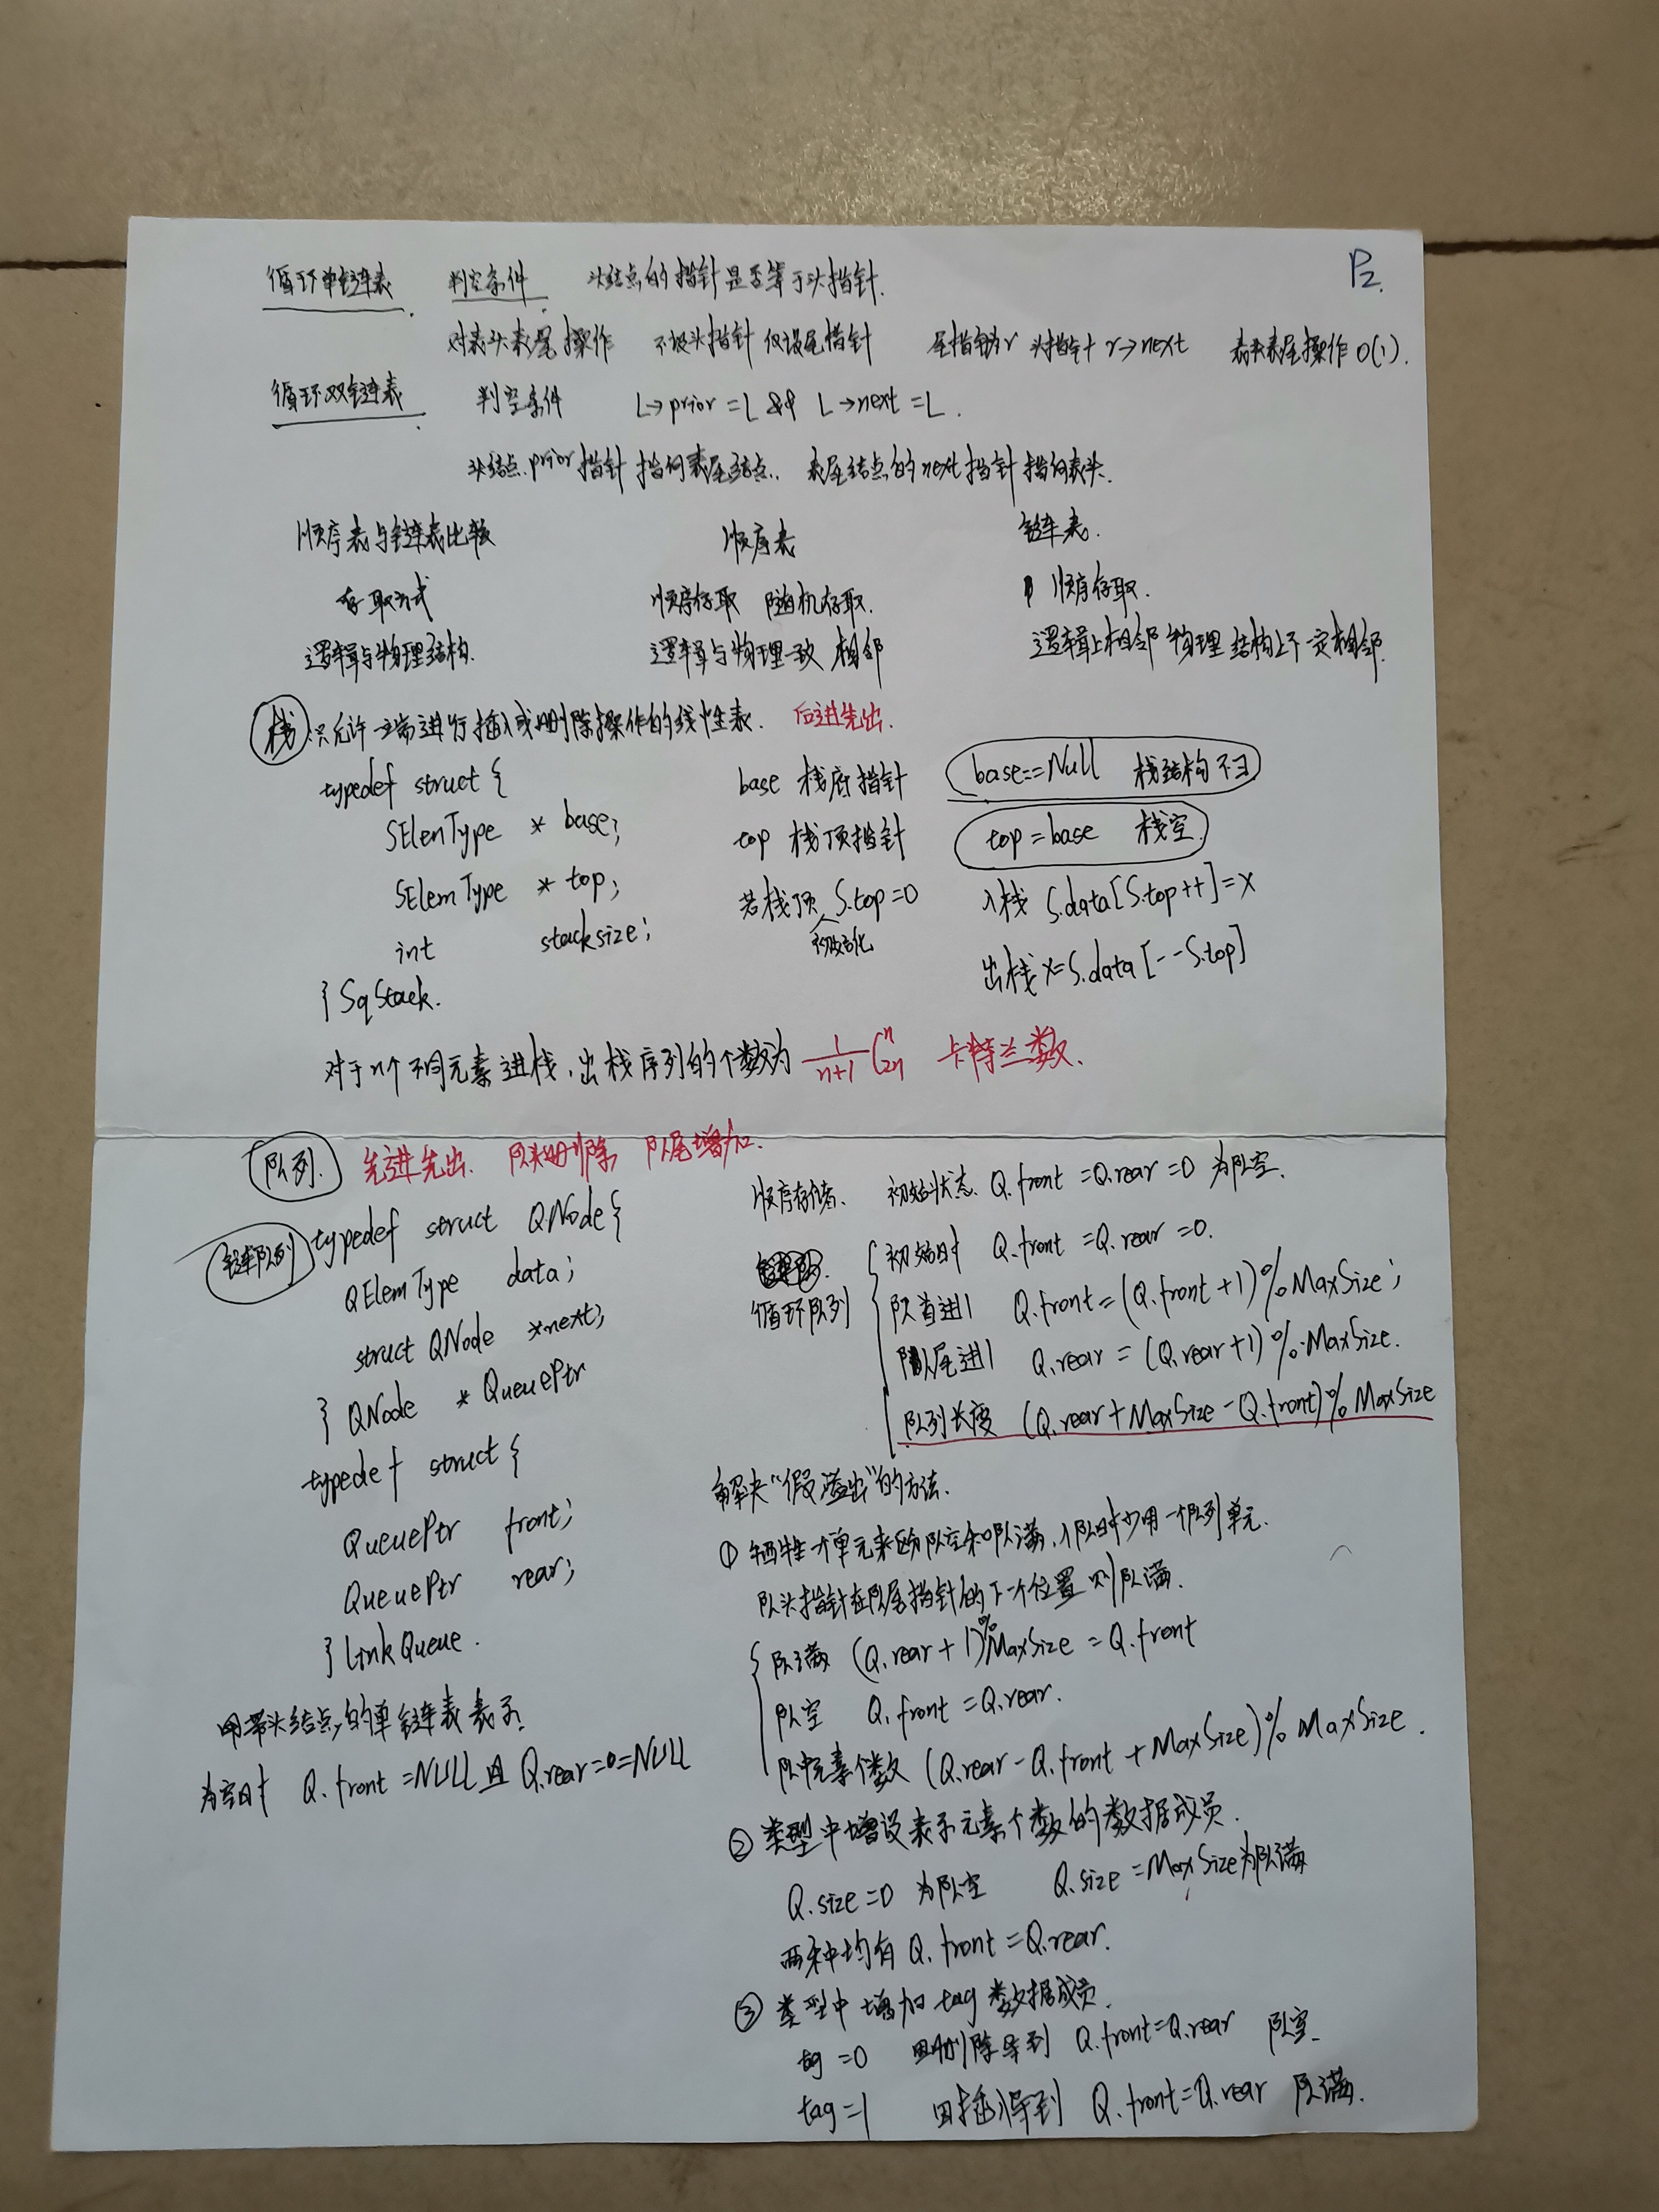 P2.
循环单链表 判空条件 头结点的指针是否等于头指针.
对表头表尾操作 不设头指针 仅设尾指针 尾指针r 头指针r→next 表头表尾操作O(1).
循环双链表 判空条件 L→prior=L && L→next=L.
头结点.prior指针指向表尾结点. 表尾结点的next指针指向表头.
顺序表与链表比较 顺序表 链表.
存取方式 顺序存取 随机存取. 顺序存取.
逻辑与物理结构. 逻辑与物理一致 相邻 逻辑上相邻 物理结构上不一定相邻.
栈 只允许一端进行插入或删除操作的线性表. 后进先出.
typedef struct {
SElemType * base;
SElemType * top;
int stacksize;
} SqStack.
base 栈底指针 base==Null 栈结构不∃
top 栈顶指针 top=base 栈空
若栈顶 初始化 S.top=0 入栈 S.data[S.top++]=x
出栈 x=S.data[--S.top]
对于n个不同元素进栈,出栈序列的个数为 1/(n+1) C2n^n 卡特兰数.
队列. 先进先出. 队头删除 队尾增加.
链队列 typedef struct QNode{
QElemType data;
struct QNode *next;
} QNode * QueuePtr
typedef struct {
QueuePtr front;
QueuePtr rear;
} LinkQueue.
用带头结点的单链表表示.
为空时 Q.front=NULL且Q.rear=0=NULL
顺序存储. 初始状态 Q.front=Q.rear=0 为队空.
循环队列
初始时 Q.front=Q.rear=0.
队首进1 Q.front=(Q.front+1)%MaxSize;
队尾进1 Q.rear=(Q.rear+1)%MaxSize.
队列长度 (Q.rear+MaxSize-Q.front)%MaxSize
解决“假溢出”的方法.
① 牺牲一个单元来区分队空和队满,入队时少用一个队列单元.
队头指针在队尾指针的下一个位置 则队满.
队满 (Q.rear+1)%MaxSize=Q.front
队空 Q.front=Q.rear.
队中元素个数 (Q.rear-Q.front+MaxSize)%MaxSize.
② 类型中增设表示元素个数的数据成员.
Q.size=0 为队空 Q.size=MaxSize为队满
两种均有 Q.front=Q.rear.
③ 类型中增加tag数据成员.
tag=0 因删除导到 Q.front=Q.rear 队空.
tag=1 因插入导到 Q.front=Q.rear 队满.